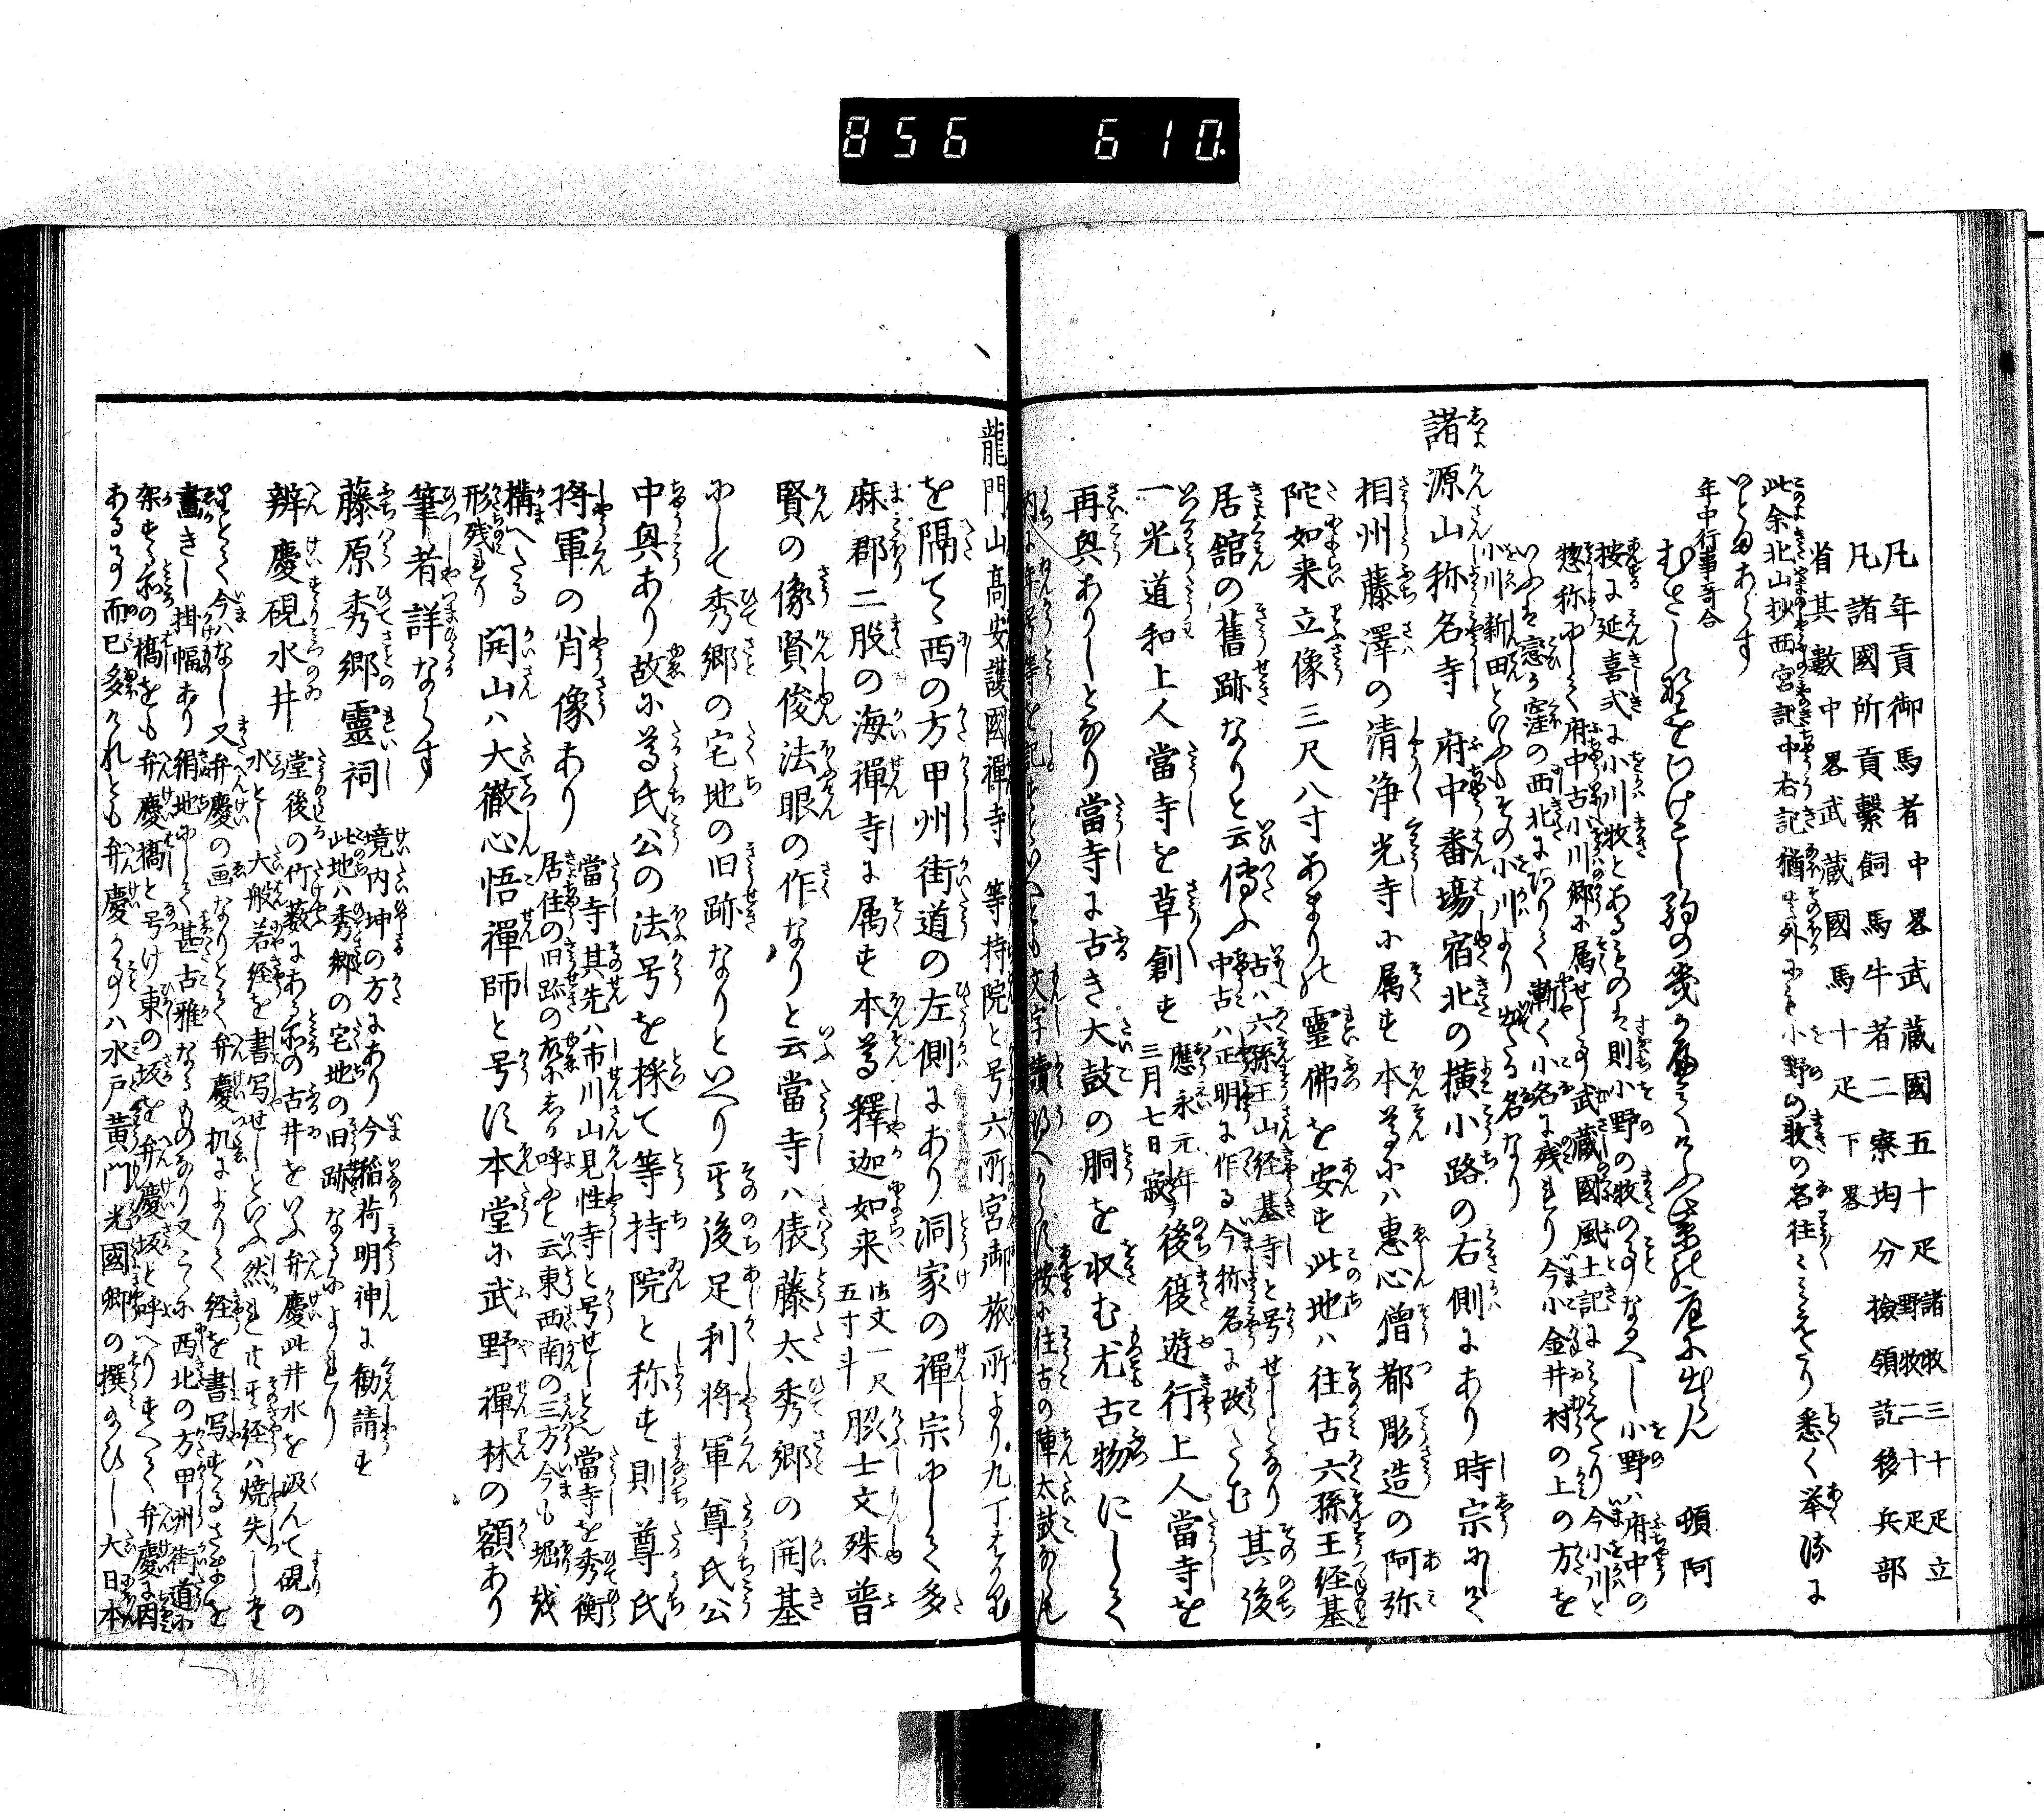 856 610.
凡年貢御馬者中畧武蔵國五十疋諸牧三十疋立野牧二十疋
凡諸國所貢繋飼馬牛者二寮均分撿領訖移兵部
省其數中畧武蔵國馬十疋下畧
此余北山抄西宮記中右記猶其外にも小野の牧の名往々みえたり悉く挙るに
いとまあらす
年中行事哥合
頓阿
按に延喜式に小川牧とあるもの是則小野の牧の事なるへし小野ハ府中の
惣称にして府中古小川郷に属せし事武蔵國風土記にみえたり今小川と
いふは恋か窪の西北にありて漸く小名に残れり今小金井村の上の方を
小川新田といふもその小川より出たる名なり
諸源山称名寺 府中番場宿北の横小路の右側にあり時宗にして
相州藤澤の清浄光寺に属す本尊ハ惠心僧都彫造の阿弥
陀如来立像三尺八寸あまりの靈佛を安す此地ハ往古六孫王経基
居舘の舊跡なりと云傳ふ古ハ六孫王山経基寺と号せしとなり中古ハ正明に作る今称名に改たむ其後
一光道和上人當寺を草創す應永元年三月七日寂す後遊行上人當寺を
再興ありしとなり當寺に古き大鼓の胴を収む尤古物にして
内に年号等を記すといへとも文字讀得へからす按に往古の陣太鼓ならん
龍門山高安護國禪寺 等持院と号六所宮御旅所より九丁はかり
を隔てゝ西の方甲州街道の左側にあり洞家の禪宗にして多
麻郡二股の海禪寺に属す本尊釋迦如来御丈一尺五寸斗脇士文殊普
賢の像賢俊法眼の作なりと云當寺ハ俵藤太秀郷の開基
にして秀郷の宅地の旧跡なりといへり其後足利将軍尊氏公
中興あり故に尊氏公の法号を採て等持院と称す則尊氏
将軍の肖像あり當寺其先ハ市川山見性寺と号せしとそ當寺を秀衡
居住の旧跡の故にしか呼と云東西南の三方今も堀或
構へたる形残れり開山ハ大徹心悟禪師と号す本堂に武野禪林の額あり
筆者詳ならす
藤原秀郷靈祠 境内坤の方にあり今稲荷明神に勧請す
此地ハ秀郷の宅地の旧跡なるによれり
辨慶硯水井 堂後の竹薮にある所の古井をいふ弁慶此井水を汲んて硯の
水とし大般若経を書写せしといふ然れとも其経ハ焼失しせ
りとて今ハなし又弁慶の画なりとて弁慶机によりて経を書写するさまを
畫きし掛幅あり絹地にして甚古雅なるものなり又こゝに西北の方甲州街道に
架する所の橋をも弁慶橋と号け東の坂を弁慶坂と呼へりすへて弁慶に因
ある事而已多けれとも弁慶か事ハ水戸黄門光國卿の撰給ひし大日本